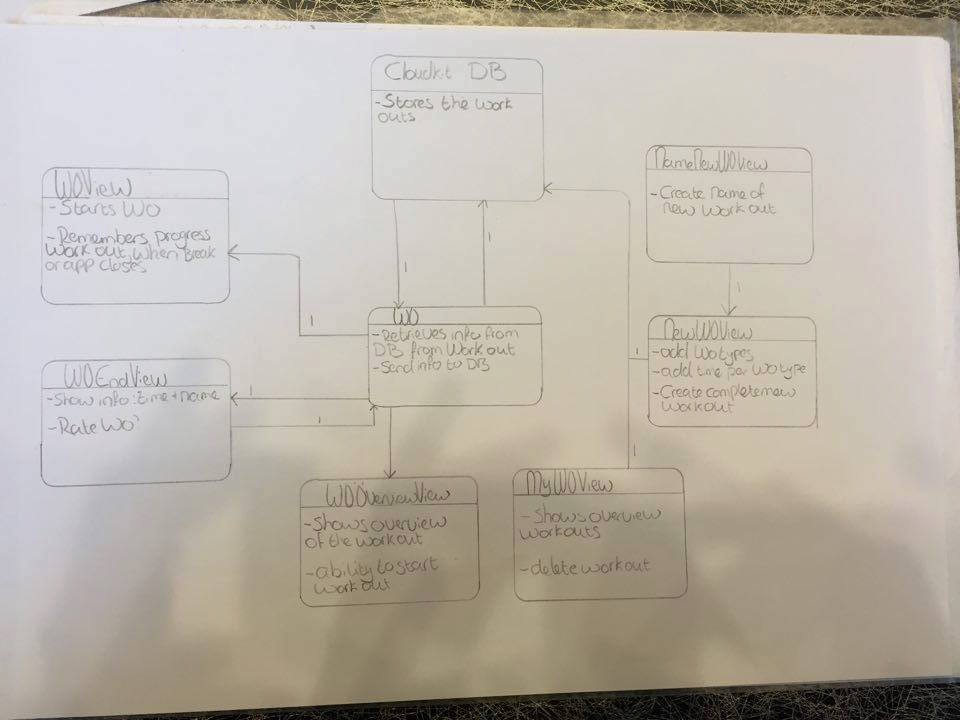 Cloudkit DB
-Stores the work
outs
NameNewWOView
-Create name of
new workout
WOView
-Starts WO
-Remembers progress
workout, when Break
or app closes
1
1
1
WO
-Retrieves info from
DB from workout
-Send info to DB
1
NewWOView
-add WO types
-add time per WO type
-Create complete new
workout
1
WOEndView
-Show info: time + name
-Rate WO
1
1
1
WOOverviewView
-Shows overview
of the workout
-ability to start
workout
MyWOView
-Shows overview
workouts
-delete workout